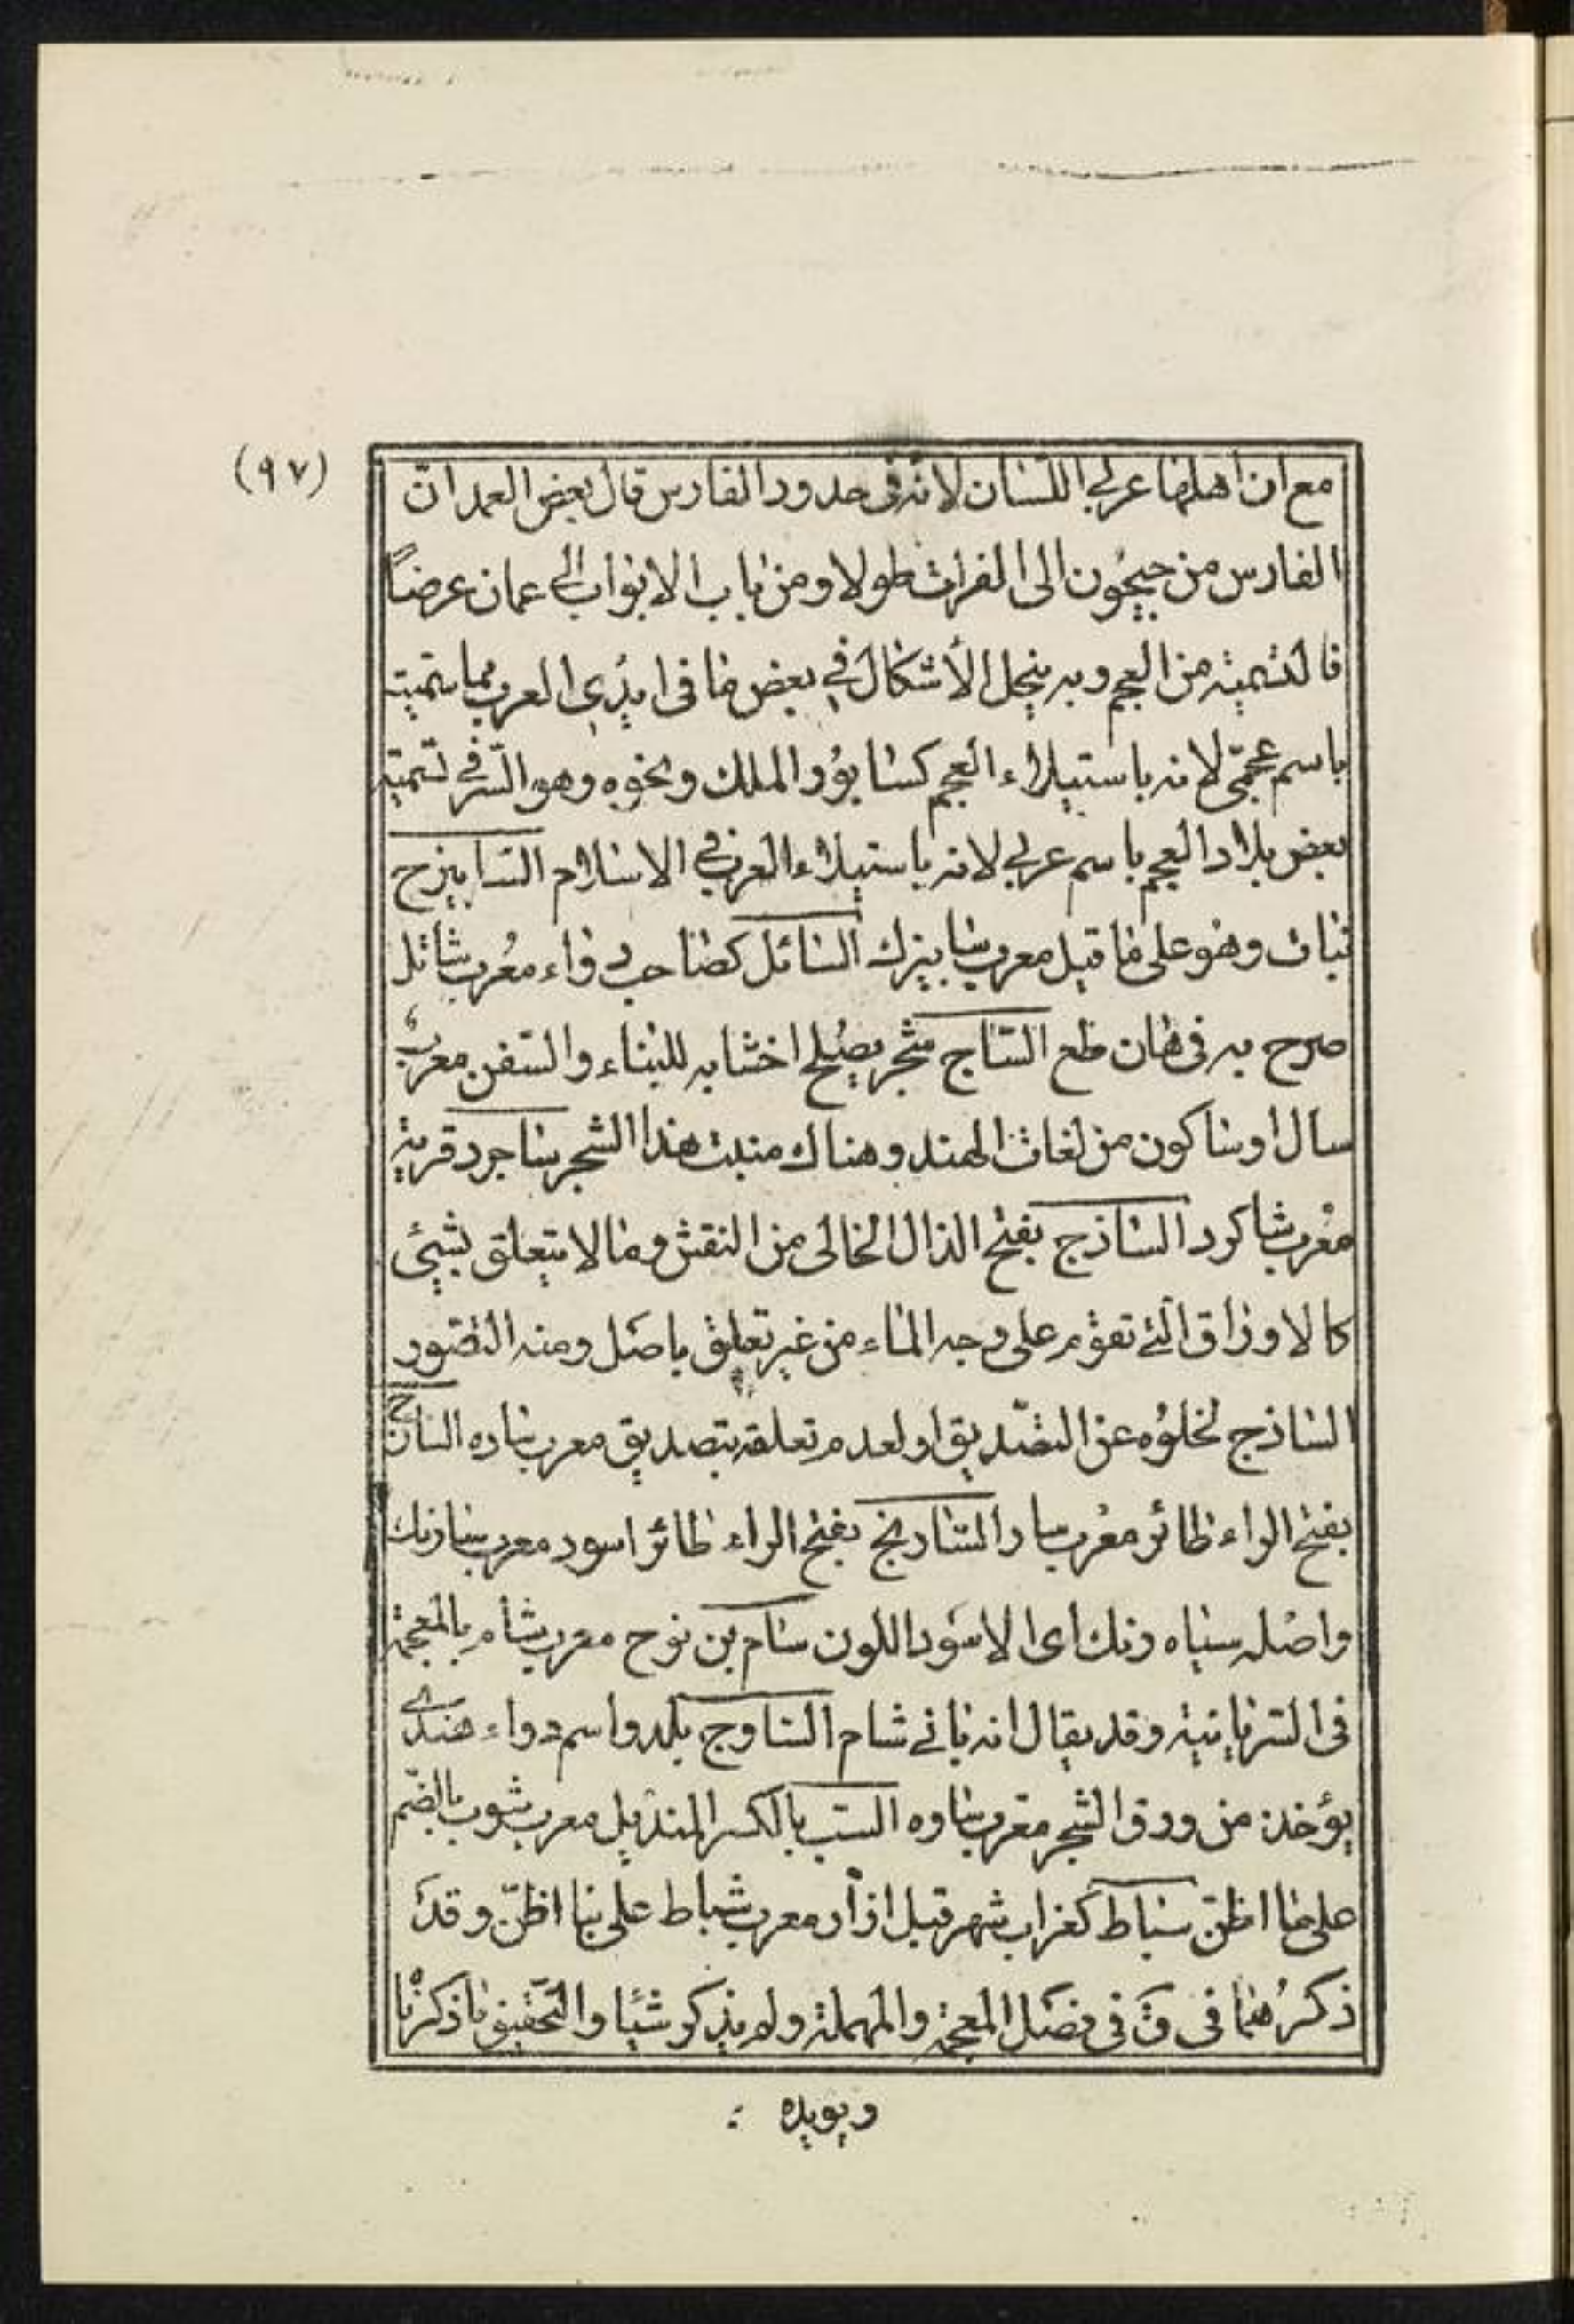 (٩٧)
مع ان اهلها عربي اللسان لانه في حدود الفارس قال بعض العمد انّ
الفارس من جيحون الى الفرات طولا ومن باب الابواب الى عمان عرضاً
فالتسمية من العجم وبه ينحل الأشكال في بعض ما في ايدي العرب مما سميت
باسم عجمّي لانه باستيلاء العجم كسابور الملك ونحوه وهو السّر في تسمية
بعض بلاد العجم باسم عربي لانه باستيلاء العرب في الاسلام السابيزج
نبات وهو على ما قيل معرب سابيزك السائل كصاحب دواء معرب شاتل
صرح به في هان طع الساج شجر يصلح اخشابه للبناء والسّفن معربُ
سال او ساكون من لغات الهند وهناك منبت هذا الشجر ساجرد قرية
معرب شاكرد الساذج بفتح الذال الخالى من النقش وما لا يتعلق بشيئ
كالاوراق الّتي تقوم على وجه الماء من غير تعلق باصل ومنه التصور
الساذج لخلوّه عن التصّديق او لعدم تعلقه بتصديق معرب ساده السارج
بفتح الراء طائر معرب سار السارنج بفتح الراء طائر اسود معرب سارنك
واصله سياه رنك اى الاسود اللون سام بن نوح معرب شام بالمعجمة
في السريانية وقد يقال انه باني شام الساوج بلد واسم دواء هندي
يؤخذ من ورق الشجر معرب ساوه السب بالكسر المنديل معرب شوب بالضّم
على ما اظنّ سباط كغراب شهر قبل اذار معرب شباط على ما اظنّ وقد
ذكرُهما في قَ في فصل المعجمة والمهملة ولم يذكر شيئا والتّحقيق ما ذكرناه
ويويده